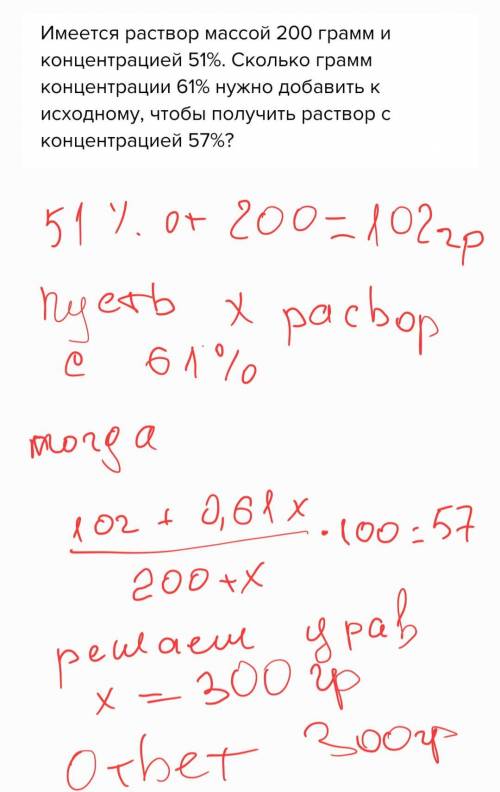 Имеется раствор массой 200 грамм и
концентрацией 51%. Сколько грамм
концентрации 61% нужно добавить к
исходному, чтобы получить раствор с
концентрацией 57%?
51 % от 200 = 102 гр
пусть x расвор
с 61%
тогда
102 + 0,61x
200+x
· 100 = 57
решаем урав
x = 300 гр
Ответ 300гр